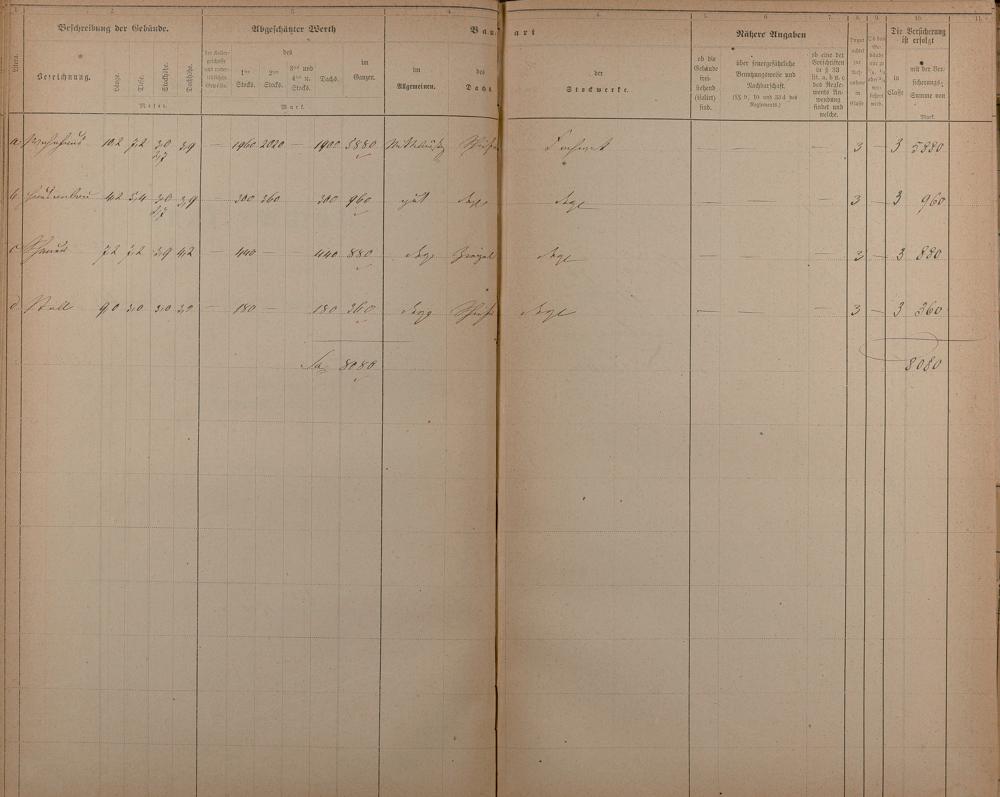 1. 2. 3. 4. 4. 5. 6. 7. 8. 9. 10. 11.
Beschreibung der Gebäude. Abgeschätzter Werth Bau art Nähere Angaben Die Versicherung ist erfolgt
Litera. Bezeichnung. Länge. Tiefe. Stockhöhe. Dachhöhe.
Meter.
des
1ten Stocks. 2ten Stocks. 3ten und 4ten u. Stocks. Dachs. im Ganzen.
Mark.
im Allgemeinen. des Dachs der Stockwerke.
ob die Gebäude freistehend (isolirt) sind.
über feuergefährliche Benutzungsweise und Nachbarschaft.
(§§ 9, 10 und 33 d des Reglements.)
ob eine der Vorschriften in § 33 lit. a, b u. c des Reglements Anwendung findet und welche.
in Classe
mit der Versicherungs-Summe von
Mark.
a Wohnhaus 10,2 7,2 3,0 2,7 3,9 — 1960 2020 — 1900 5880 Fachwerk — — — 3 — 3 5880
b 4,2 5,4 3,0 2,7 3,9 — 300 360 300 960 gut desgl. desgl. — — — 3 — 3 960
c Scheuer 7,2 7,2 3,9 4,2 — 440 — 440 880 desgl. Ziegel desgl. — — — 3 — 3 880
d Stall 9,0 3,0 3,0 3,9 — 180 — 180 360 desgl. desgl. — — — 3 — 3 360
Sa. 8080 8080